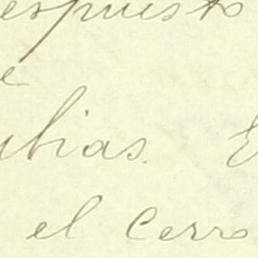 espuesto
e
ubias. E
el cerro